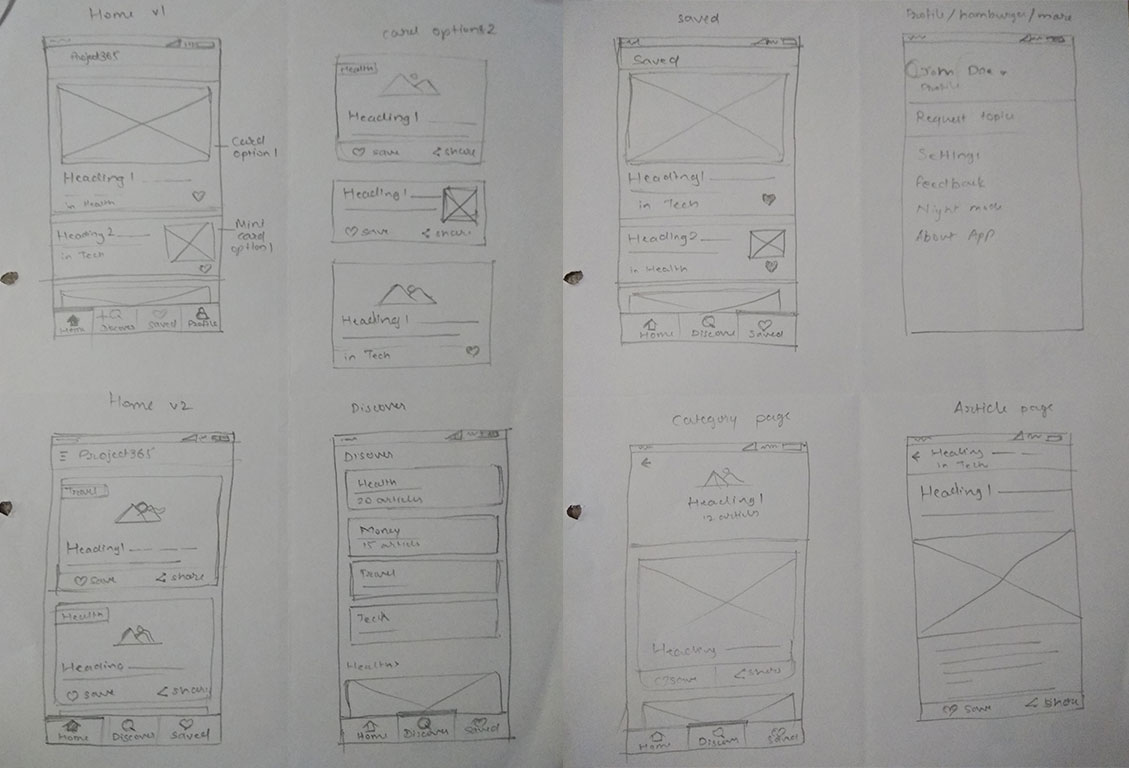 Home v1
Project365
Heading1
in Health
Card
option1
Heading2
in Tech
Mini
card
option1
Home
Discover
Saved
Profile
card options2
Health
Heading1
save
share
Heading1
save
share
Heading1
in Tech
saved
Saved
Heading1
in Tech
Heading2
in Health
Home
Discover
Saved
Profile/hamburger/more
Doe
Profile
Request topic
Settings
Feedback
Night mode
About App
Home v2
Project365
Travel
Heading1
save
share
Health
Heading
save
share
Home
Discover
Saved
Discover
Discover
Health
20 articles
Money
15 articles
Travel
Tech
Health>
Home
Discover
Saved
Category page
Heading1
12 articles
Heading
save
share
Home
Discover
Saved
Article page
Heading
in Tech
Heading1
save
share